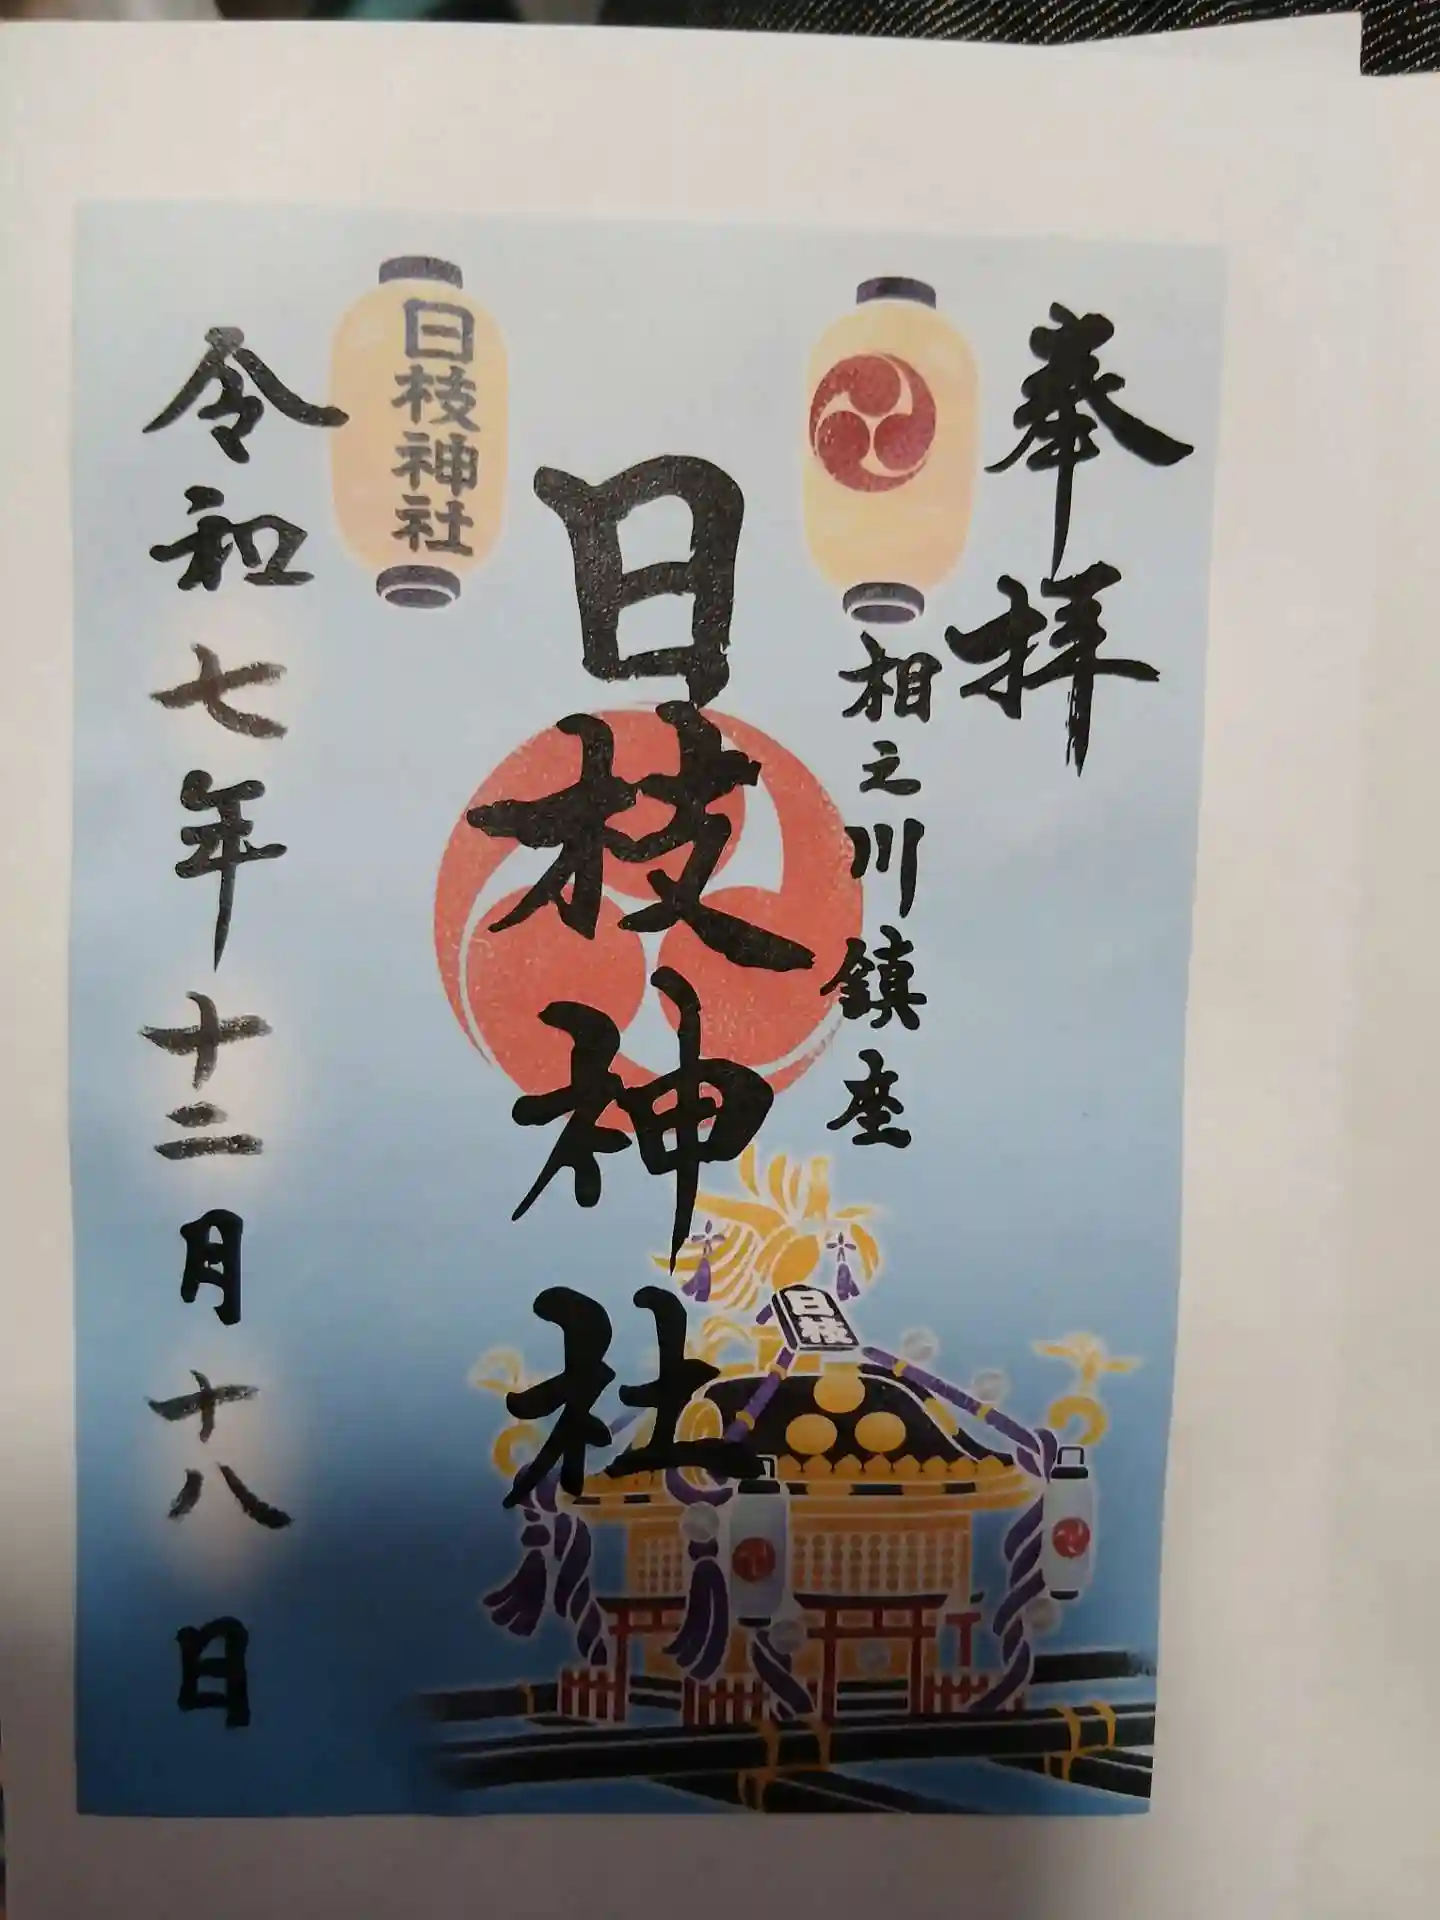 奉拝
相之川鎮座
日枝神社
日枝神社
令和七年十二月十八日
日枝